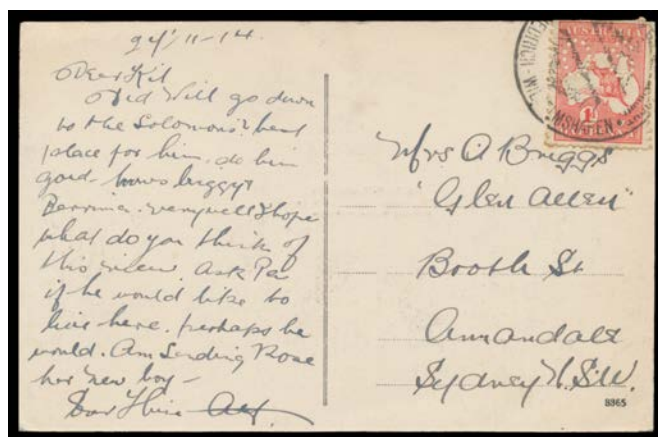 24/11-14.
Dear Kit
Did Will go down
to the Solomons? best
place for him. do him
good - hows briggy?
Berrima. very well I hope
what do you think of
this view. ask Pa
if he would like to
live here. perhaps he
would. Am Sending Rose
her new boy -
AUSTRALIA
1D
FRIEDRICH-WIL
MSHAFEN
Mrs A Briggs
"Glen Allen"
Booth St
Annandale
Sydney N.S.W.
8365